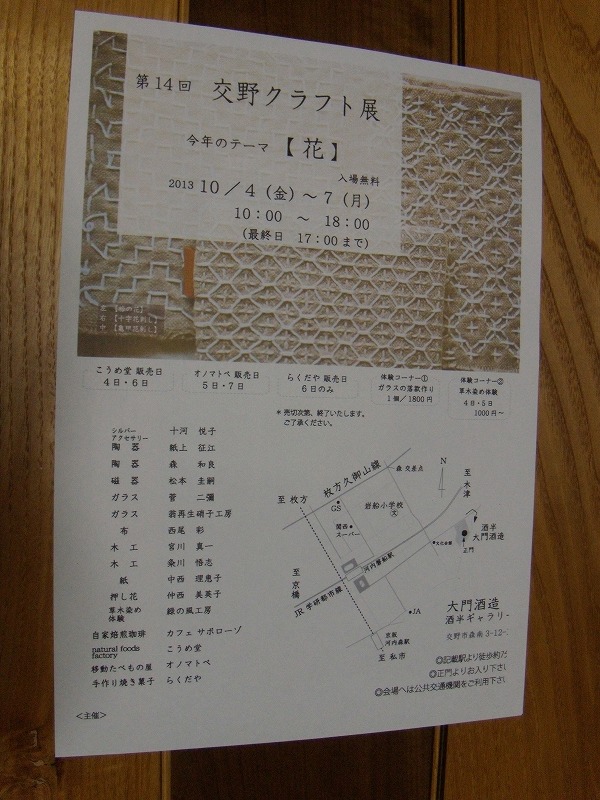 第14回 交野クラフト展
今年のテーマ 【 花 】
入場無料
2013 10／4（金）～7（月）
10：00 ～ 18：00
（最終日 17：00まで）
右 【十字花刺し】
中 【亀甲花刺し】
こうめ堂 販売日
4日・6日
オノマトペ 販売日
5日・7日
らくだや 販売日
6日のみ
体験コーナー①
ガラスの箸置作り
1個／1800円
体験コーナー②
草木染め体験
4日・5日
1000円～
＊売切次第、終了いたします。
ご了承ください。
シルバーアクセサリー 十河 悦子
陶 器 紙上 征江
陶 器 森 和良
磁 器 松本 圭嗣
ガラス 菅 二彌
ガラス 翁再生硝子工房
布 西尾 彩
木 工 宮川 真一
木 工 粂川 悟志
紙 中西 理恵子
押し花 仲西 美英子
草木染め体験 緑の風工房
自家焙煎珈琲 カフェ サポローゾ
natural foods factory こうめ堂
移動たべもの屋 オノマトペ
手作り焼き菓子 らくだや
＜主催＞
枚方久御山線
森 交差点
至 枚方
至 木津
N
GS
岩船小学校
文
関西スーパー
酒半
大門酒造
正門
文化会館
河内磐船駅
至 京橋
JR 学研都市線
JA
京阪
河内森駅
至 私市
大門酒造
酒半ギャラリー
交野市森南3-12-
◎記載駅より徒歩約
◎正門よりお入り下さい
◎会場へは公共交通機関をご利用下さい